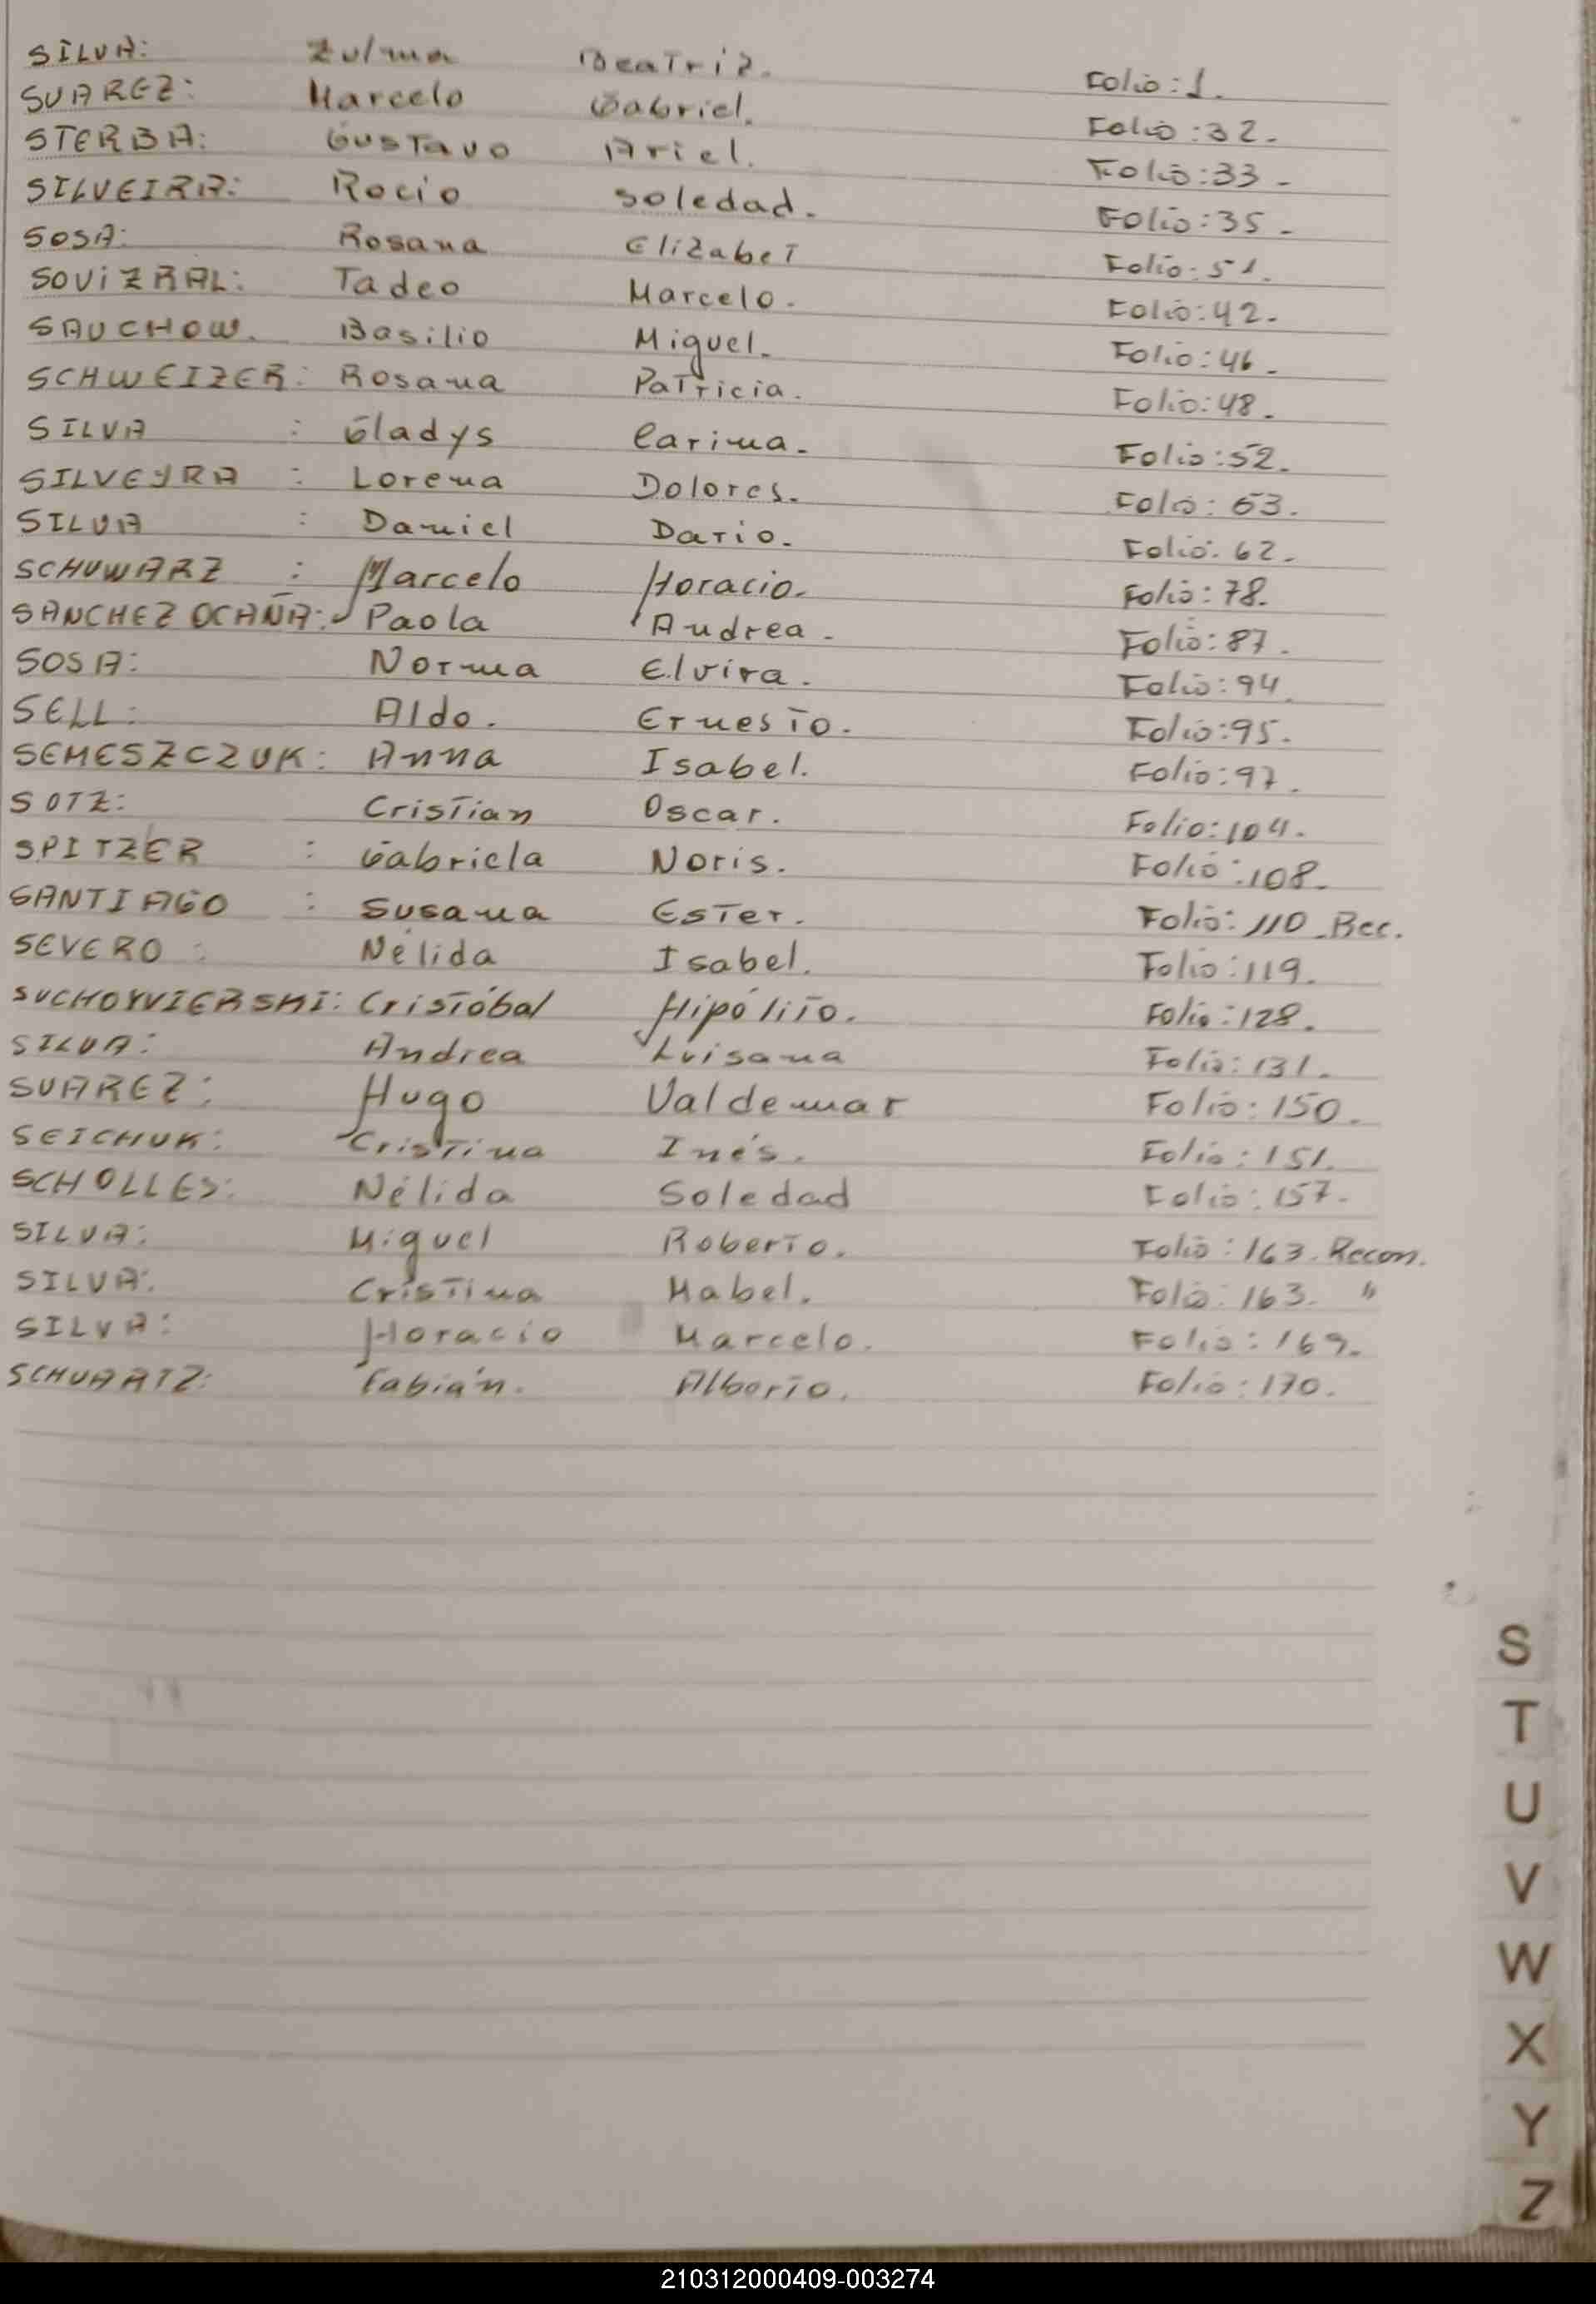 SILVA: Zulma Beatriz. Folio:1.
SUAREZ: Marcelo Gabriel. Folio:32.-
STERBA: Gustavo Ariel. Folio:33-
SILVEIRA: Rocio Soledad. Folio:35-
SOSA: Rosana Elizabet Folio:51.
SOVIZRAL: Tadeo Marcelo. Folio:42-
SAUCHOW. Basilio Miguel. Folio:46-
SCHWEIZER: Rosana Patricia. Folio:48.
SILVA : Gladys Carina. Folio:52.
SILVEYRA : Lorena Dolores. Folio: 53.
SILVA : Daniel Dario. Folio: 62.
SCHUWARZ : Marcelo Horacio. Folio: 78.
SANCHEZ OCAÑA: Paola Andrea. Folio: 87.
SOSA: Norma Elvira. Folio: 94.
SELL: Aldo. Ernesto. Folio:95.
SEMESZCZUK: Anna Isabel. Folio:97.
SOTZ: Cristian Oscar. Folio:104.
SPITZER : Gabriela Noris. Folio:108.
SANTIAGO : Susana Ester. Folio: 110 Rec.
SEVERO : Nélida Isabel. Folio:119.
Cristóbal Hipólito. Folio:128.
SILVA: Andrea Luisana Folio: 131.
SUAREZ: Hugo Valdemar Folio: 150.
SEICHUK: Cristina Inés. Folio: 151.
SCHOLLES: Nélida Soledad Folio: 157.
SILVA: Miguel Roberto. Folio: 163. Recon.
SILVA: Cristina Mabel. Folio: 163. "
SILVA: Horacio Marcelo. Folio: 169.
SCHUARTZ: Fabián. Alberto. Folio: 170.
S
T
U
V
W
X
Y
Z
210312000409-003274